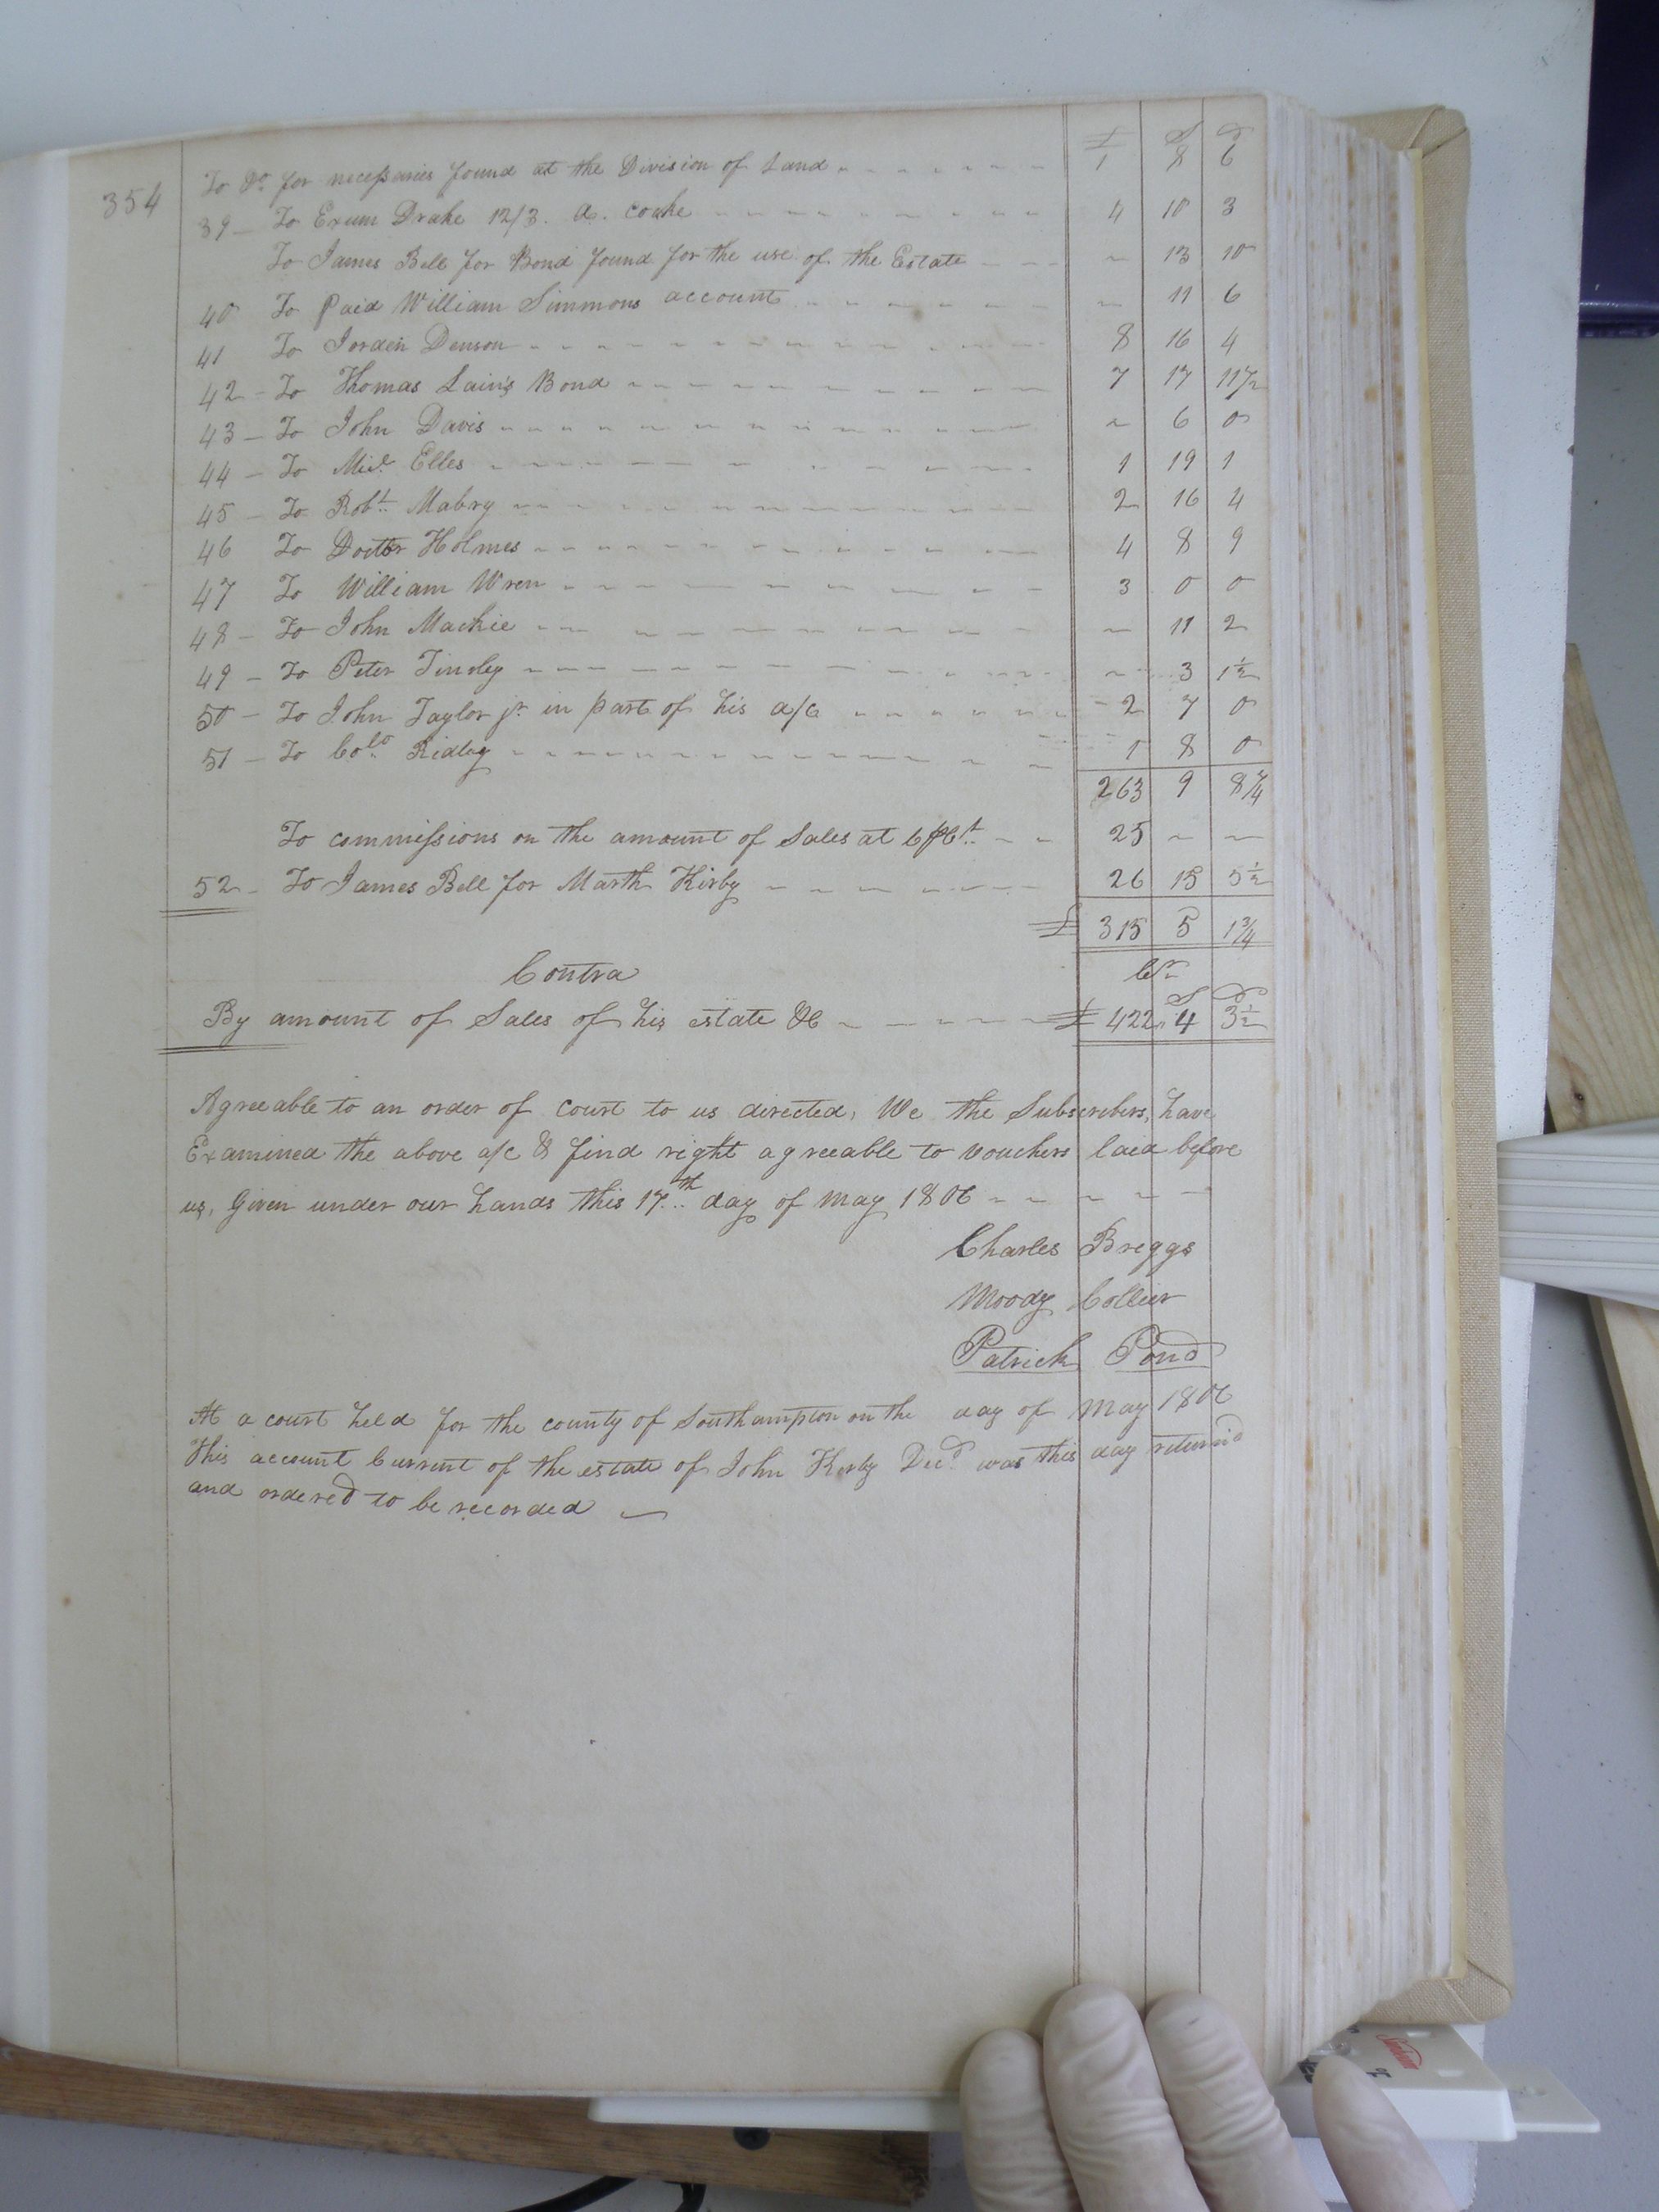 £ S D
354 To Do. for necessaries found at the Division of Land 1 8 6
39 To Exum Drake 12/3. A. coake 4 10 3
To James Bell for Bond found for the use of the Estate 13 10
40 To Paid William Simmons account 11 6
41 To Jorden Denson 8 16 4
42 To Thomas Lain's Bond 7 17 11 1/2
43 To John Davis 6 0
44 To Elles 1 19 1
45 To Robt. Mabry 2 16 4
46 To Doctor Holmes 4 8 9
47 To William Wren 3 0 0
48 To John Mackie 11 2
49 To Peter Tinsley 3 1 1/2
50 To John Taylor jr. in part of his a/c 2 7 0
51 To Colo. Ridley 1 8 0
263 9 8 1/4
To commissions on the amount of Sales at 6 pCt. 25
52 To James Bell for Marth Kirby 26 15 5 1/2
£ 315 5 1 3/4
Contra Cr
S D
By amount of Sales of his estate &C £ 422 4 3 1/2
Agreeable to an order of Court to us directed, We the Subscribers, have
Examined the above a/c & find right agreeable to vouchers laid before
us, Given under our hands this 17th day of May 1806
Charles Briggs
Moody Collier
Patrick Pond
At a court held for the county of Southampton on the day of May 1806
This account Current of the estate of John Kirby Decd. was this day returned
and ordered to be recorded
Sunbeam